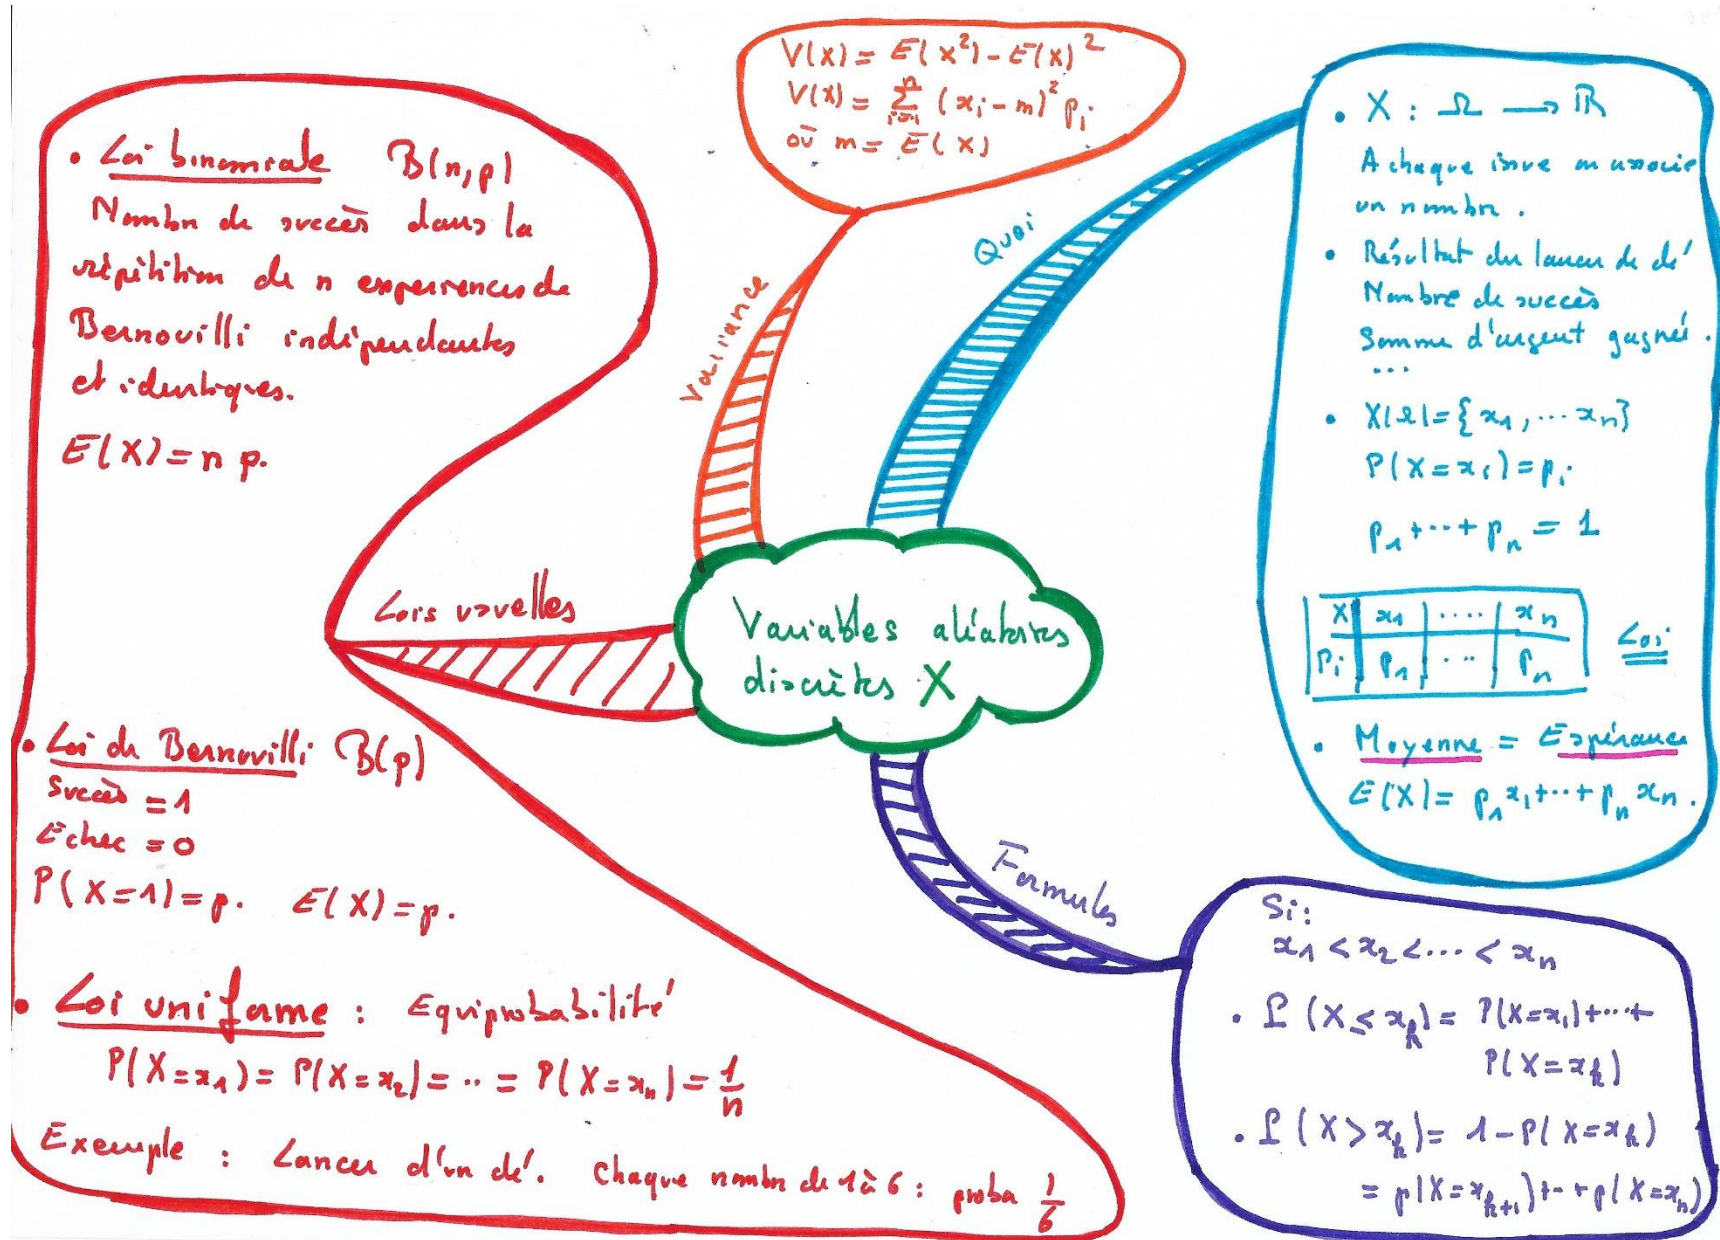 Variables aléatoires
discrètes X
Variance
V(X) = E(X²) - E(X)²
V(X) = ∑ⁿᵢ₌₁ (xᵢ - m)² pᵢ
où m = E(X)
Quoi
• X : Ω → ℝ
A chaque issue on associe
un nombre.
• Résultat du lancer de dé
Nombre de succès
Somme d'argent gagné.
...
• X(Ω) = {x₁, ... xₙ}
P(X = xᵢ) = pᵢ
p₁ + ... + pₙ = 1
X | x₁ | .... | xₙ
pᵢ | p₁ | ... | pₙ
Loi
• Moyenne = Espérance
E(X) = p₁x₁ + ... + pₙxₙ.
Formules
Si :
x₁ < x₂ < ... < xₙ
• P(X ≤ xₖ) = P(X = x₁) + ... +
P(X = xₖ)
• P(X > xₖ) = 1 - P(X = xₖ)
= p(X = xₖ₊₁) + .. + p(X = xₙ)
Lois usuelles
• Loi binomiale B(n,p)
Nombre de succès dans la
répétition de n experiences de
Bernouilli indépendantes
et identiques.
E(X) = n p.
• Loi de Bernouilli B(p)
Succès = 1
Echec = 0
P(X = 1) = p. E(X) = p.
• Loi uniforme : Equiprobabilité
P(X = x₁) = P(X = x₂) = .. = P(X = xₙ) = 1/n
Exemple : Lancer d'un dé. Chaque nombre de 1 à 6 : proba 1/6